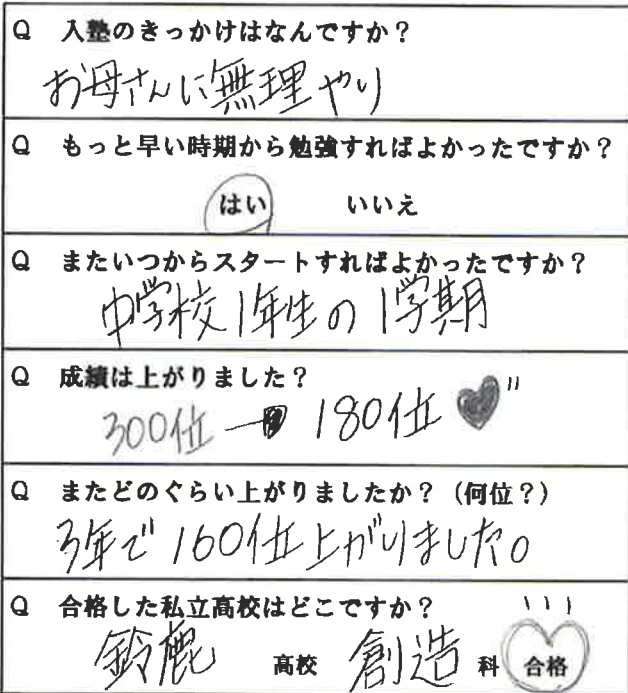 Q 入塾のきっかけはなんですか？
お母さんに無理やり
Q もっと早い時期から勉強すればよかったですか？
はい いいえ
Q またいつからスタートすればよかったですか？
中学校1年生の1学期
Q 成績は上がりました？
300位→180位♥"
Q またどのぐらい上がりましたか？（何位？）
3年で160位上がりました。
Q 合格した私立高校はどこですか？
鈴鹿 高校 創造 科 合格